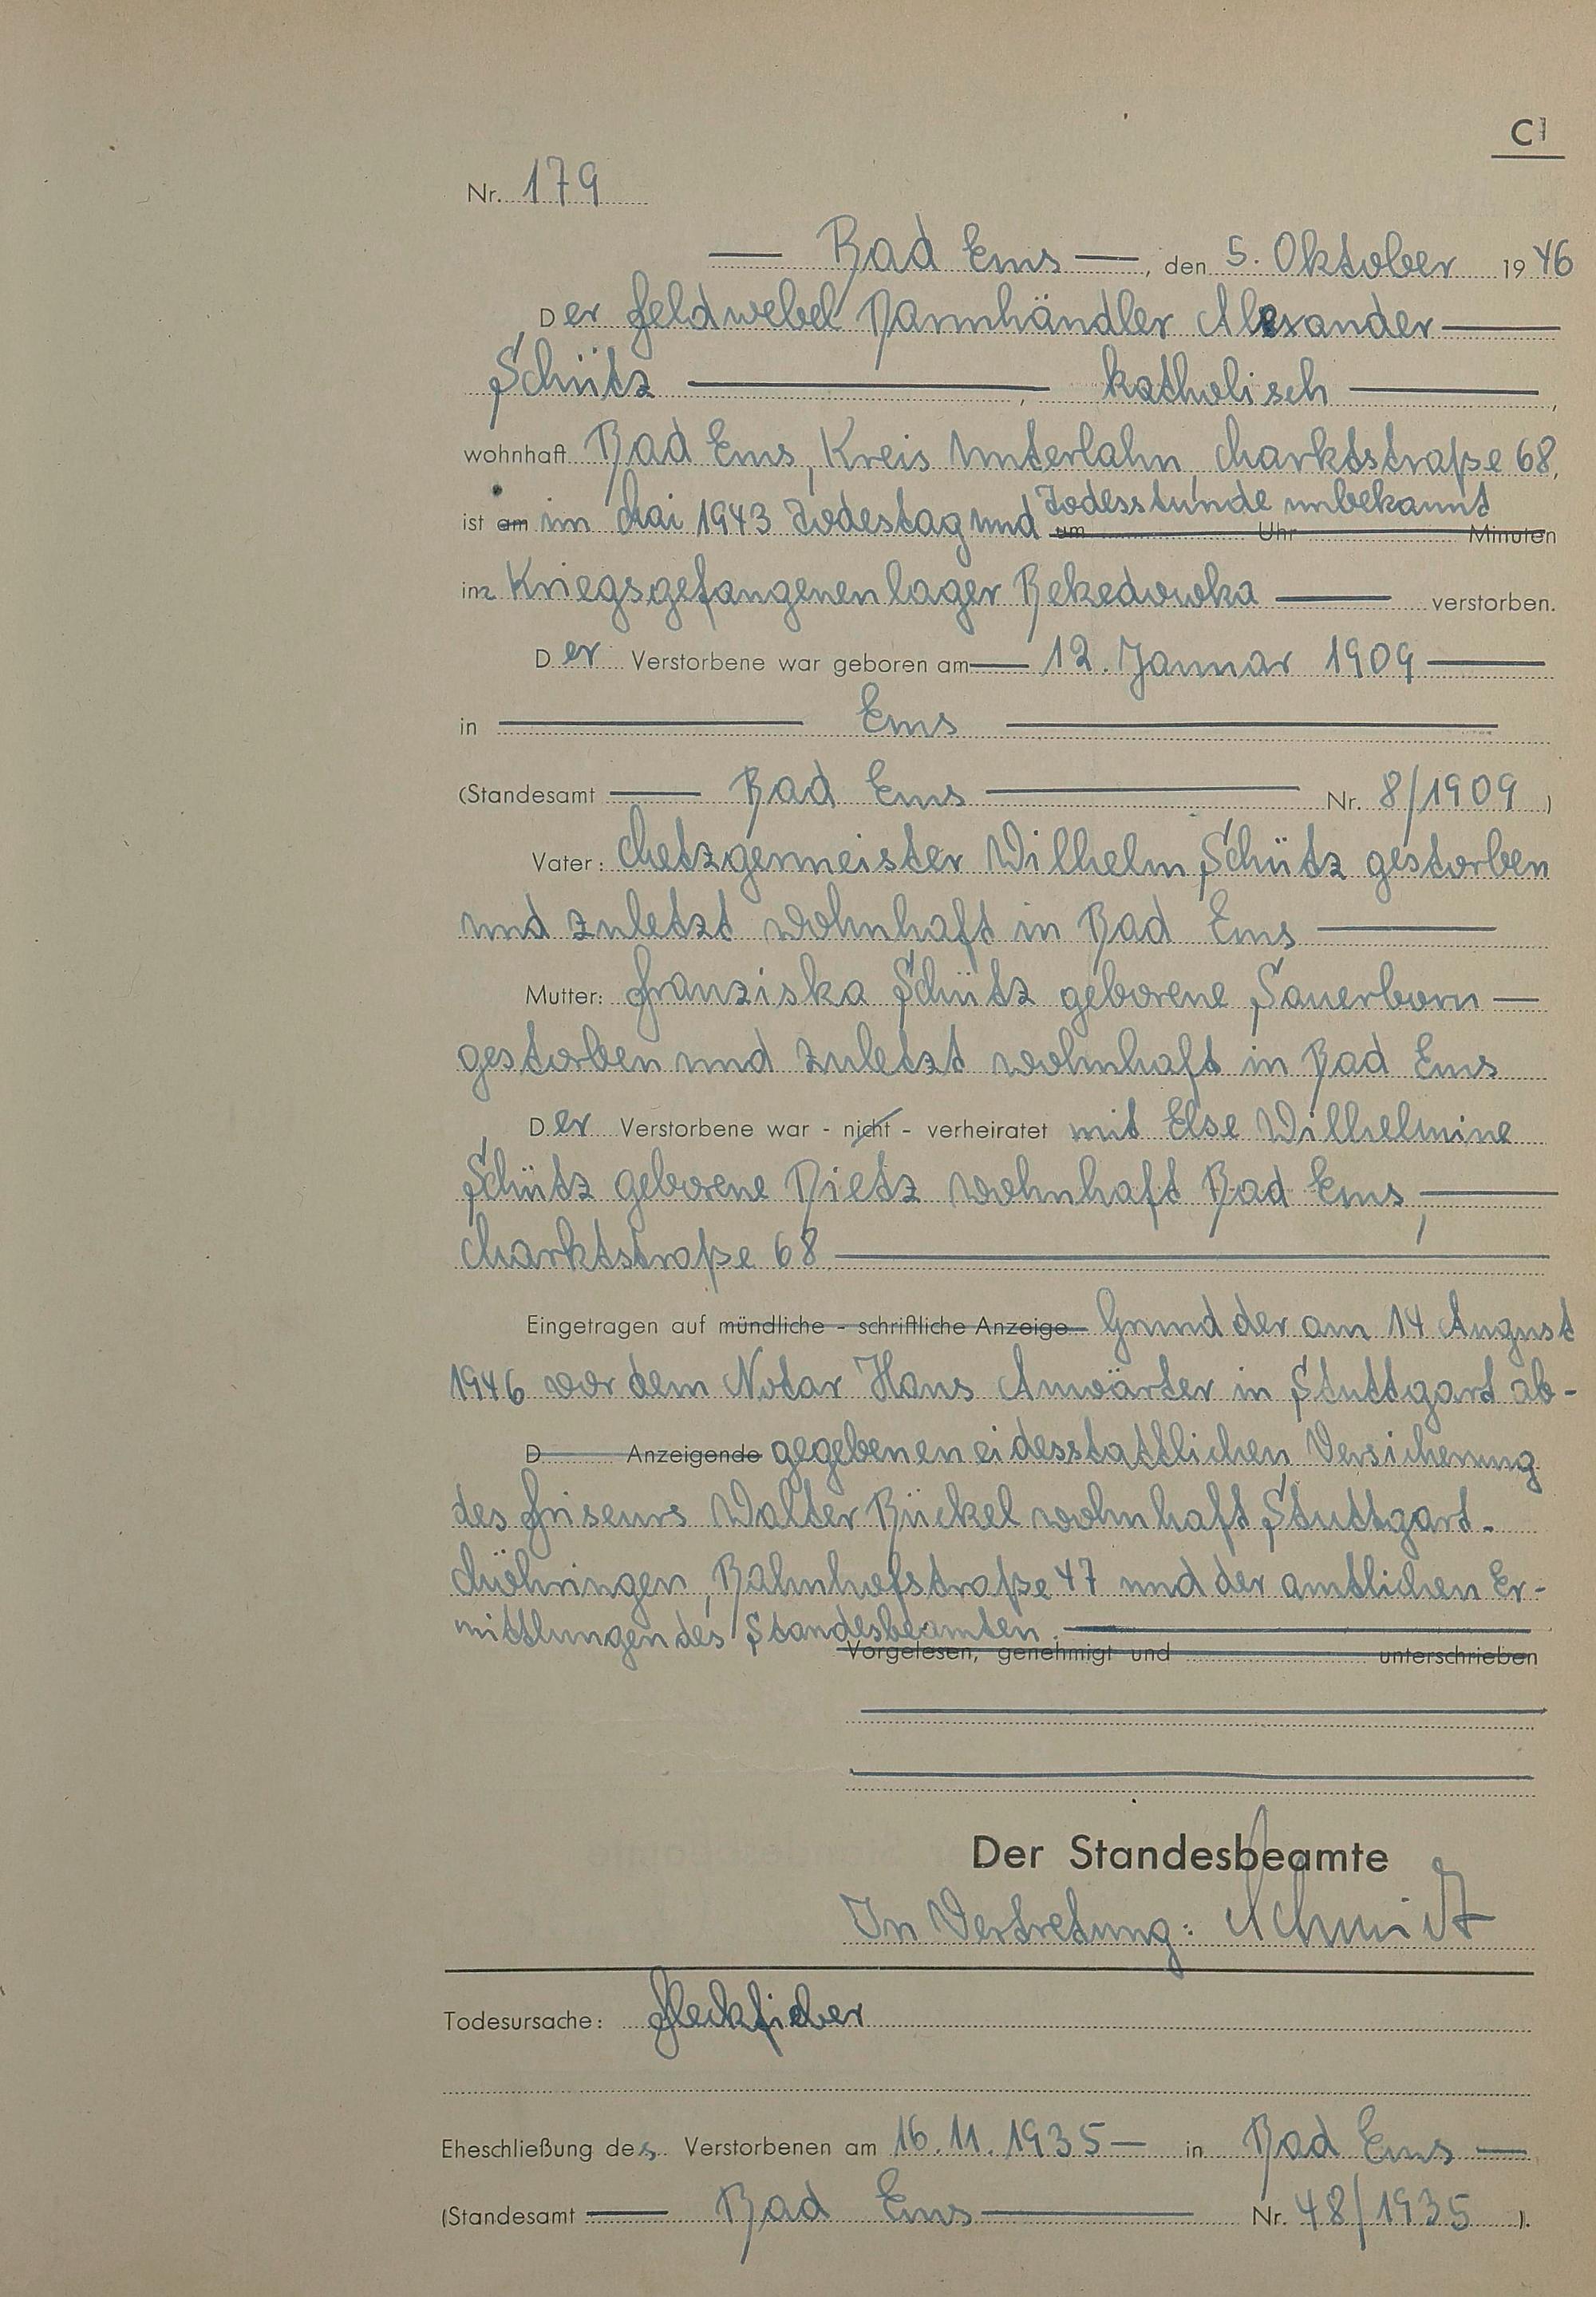 C1
Nr. 179
Bad Ems, den 5. Oktober 1946
Der Feldwebel Darmhändler Alexander
Schütz, katholisch,
wohnhaft Bad Ems, Kreis Unterlahn, Marktstraße 68,
Todesstunde unbekannt
ist am im Mai 1943 Todestag und um Uhr Minuten
im Kriegsgefangenenlager Bekedowka verstorben.
Der Verstorbene war geboren am 12. Januar 1909
in Ems
(Standesamt Bad Ems Nr. 8/1909)
Vater: Metzgermeister Wilhelm Schütz gestorben
und zuletzt wohnhaft in Bad Ems
Mutter: Franziska Schütz geborene Sauerborn
gestorben und zuletzt wohnhaft in Bad Ems
Der Verstorbene war - nicht - verheiratet mit Else Wilhelmine
Schütz geborene Dietz wohnhaft Bad Ems,
Marktstraße 68
Eingetragen auf mündliche - schriftliche Anzeige Grund der am 14 August
1946 vor dem Notar Hans Anwärter in Stuttgart ab-
D Anzeigende gegebenen eidesstattlichen Versicherung
des Friseurs Walter Bückel wohnhaft Stuttgart-
Möhringen, Bahnhofstraße 47 und der amtlichen Er-
mittlungen des Standesbeamten.
Vorgelesen, genehmigt und unterschrieben
Der Standesbeamte
In Vertretung: Schmidt
Todesursache: Fleckfieber
Eheschließung des Verstorbenen am 16.11.1935 in Bad Ems
(Standesamt Bad Ems Nr. 48/1935).